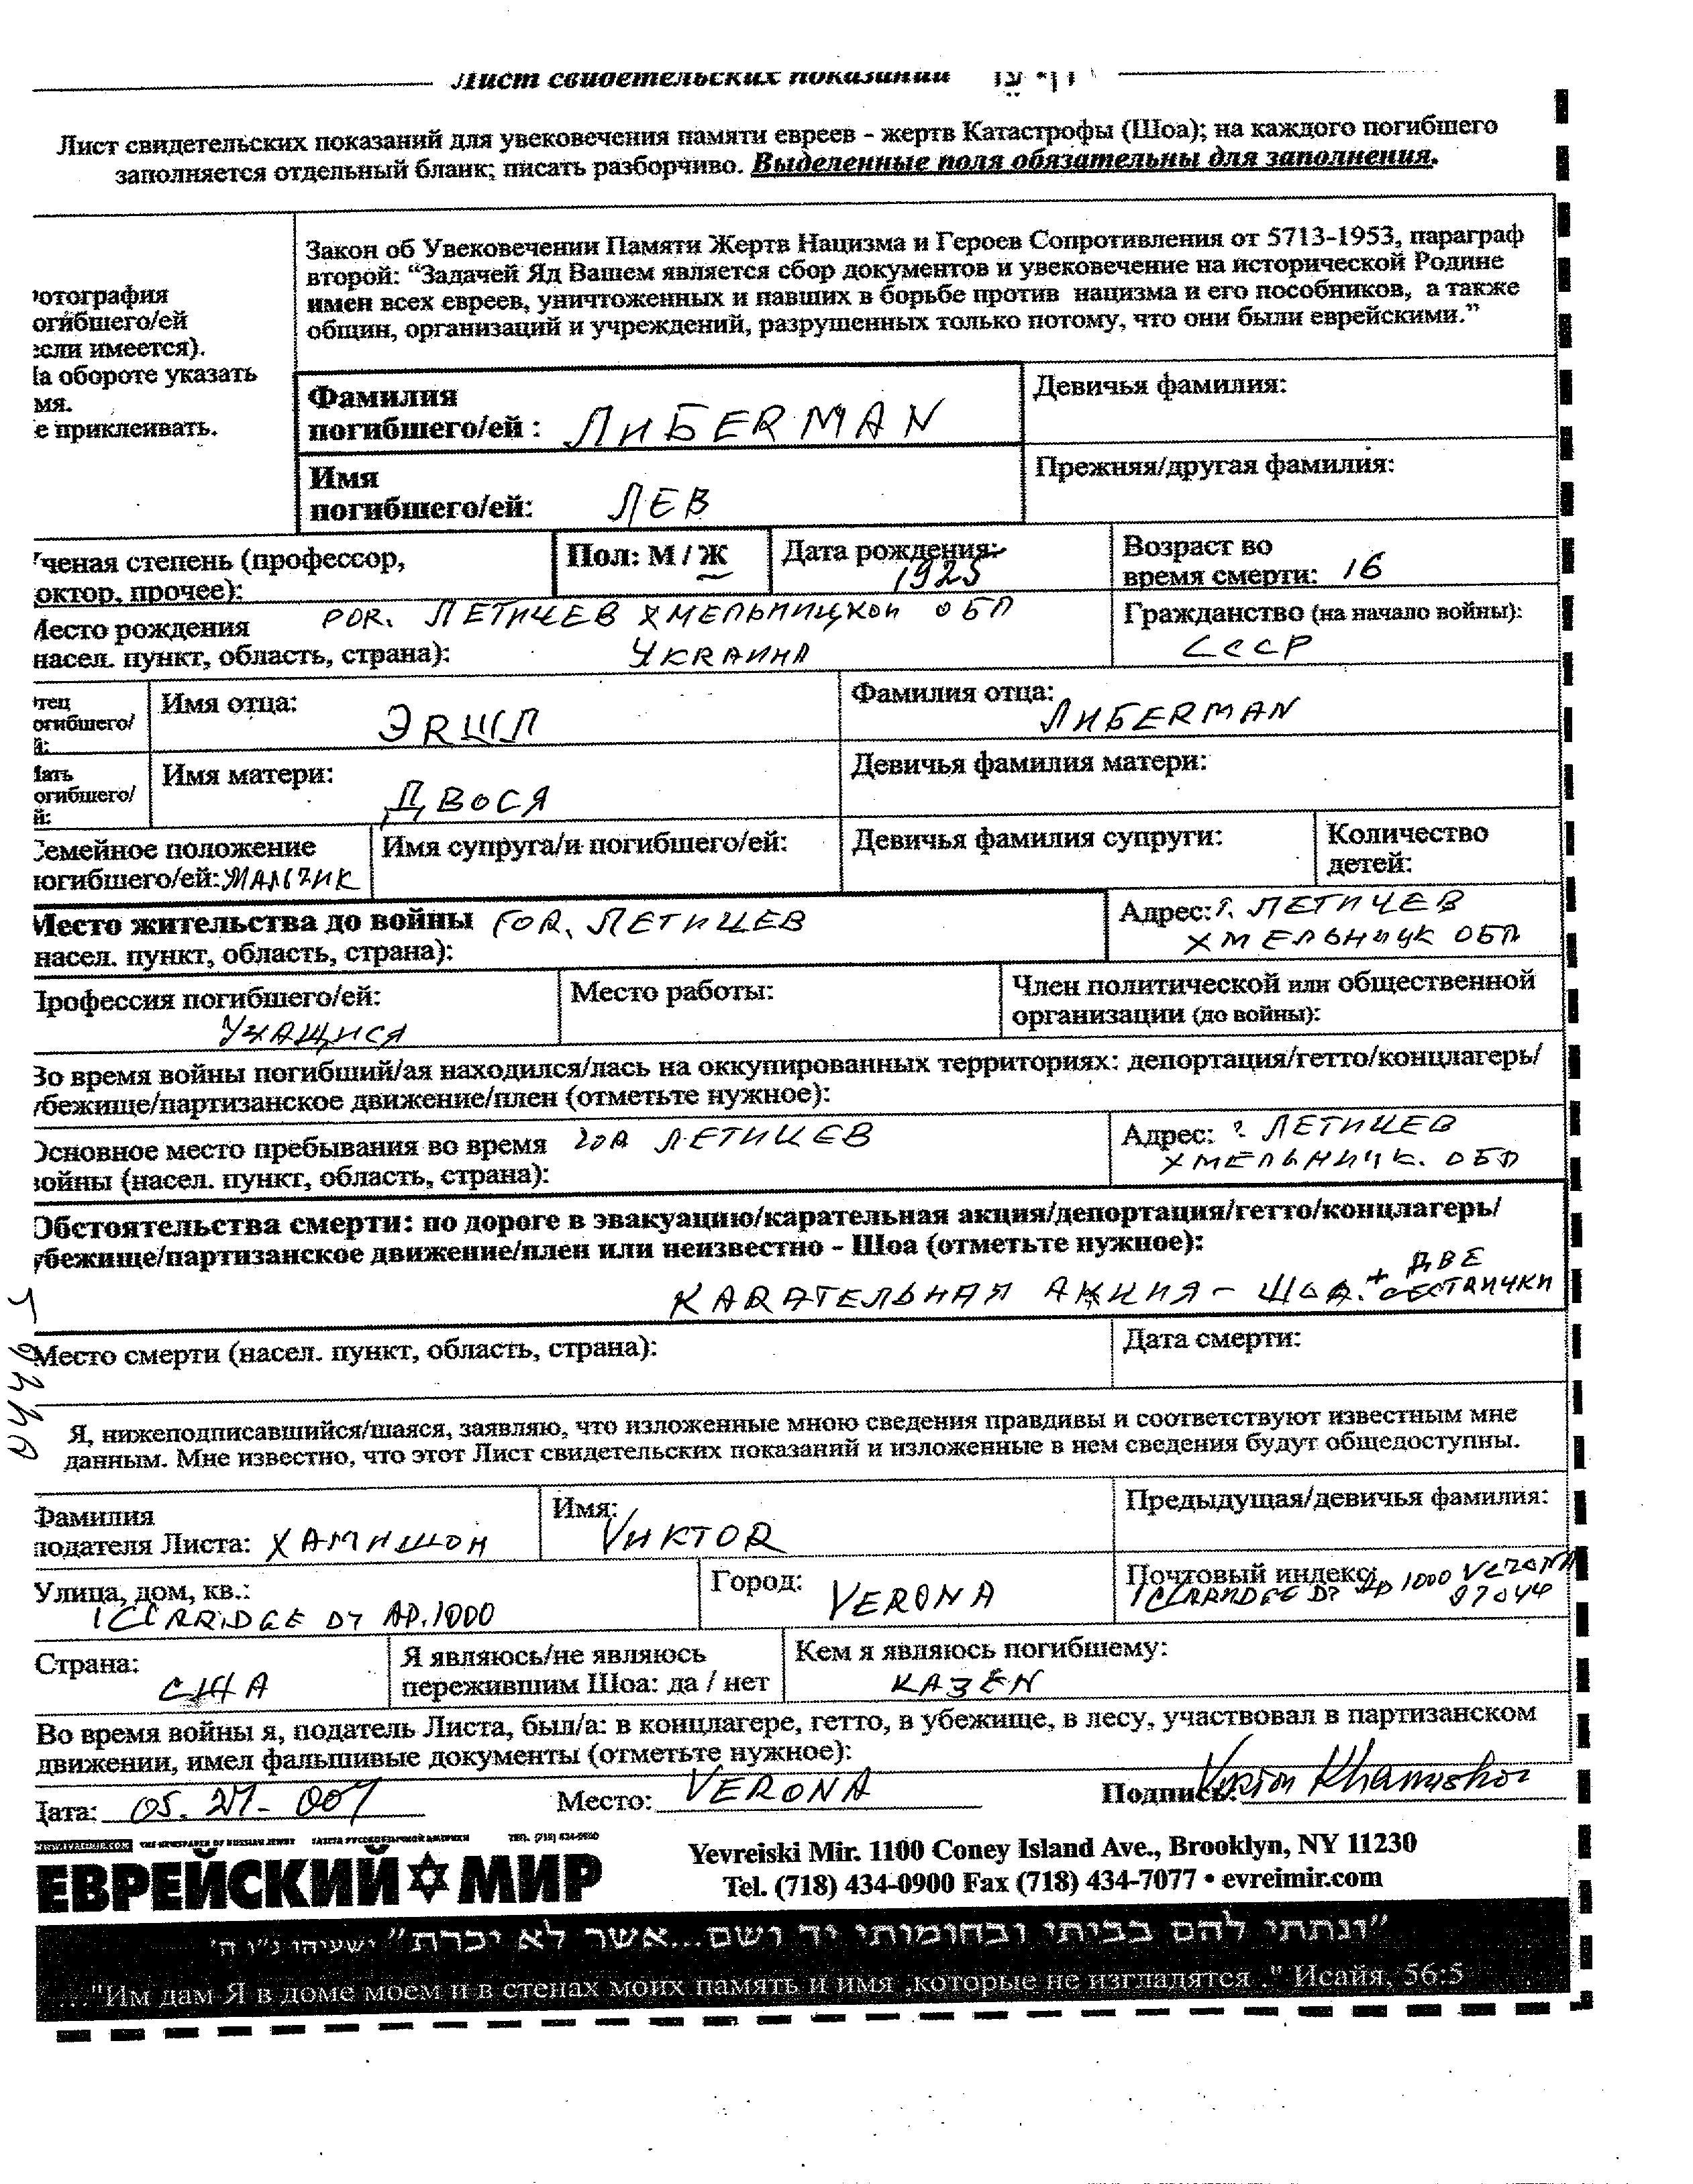 Лист свидетельских показаний
Лист свидетельских показаний для увековечения памяти евреев - жертв Катастрофы (Шоа); на каждого погибшего
заполняется отдельный бланк; писать разборчиво. Выделенные поля обязательны для заполнения.
Закон об Увековечении Памяти Жертв Нацизма и Героев Сопротивления от 5713-1953, параграф
второй: “Задачей Яд Вашем является сбор документов и увековечение на исторической Родине
имен всех евреев, уничтоженных и павших в борьбе против нацизма и его пособников, а также
общин, организаций и учреждений, разрушенных только потому, что они были еврейскими.”
отография
огибшего/ей
если имеется).
а обороте указать
мя.
е приклеивать.
Фамилия
погибшего/ей : ЛИБЕRМАN
Девичья фамилия:
Имя
погибшего/ей: ЛЕВ
Прежняя/другая фамилия:
ченая степень (профессор,
октор, прочее):
Пол: М / Ж
Дата рождения:
1925
Возраст во
время смерти: 16
Место рождения
насел. пункт, область, страна):
ЛЕТИЧЕВ ХМЕЛЬНИЦКОЙ ОБЛ
УКRАИНА
Гражданство (на начало войны):
СССР
тец
огибшего/
й:
Имя отца:
ЭRШЛ
Фамилия отца:
ЛИБЕRМАN
ать
огибшего/
й:
Имя матери:
ДВОСЯ
Девичья фамилия матери:
Семейное положение
погибшего/ей: МАЛЬЧИК
Имя супруга/и погибшего/ей:
Девичья фамилия супруги:
Количество
детей:
Место жительства до войны ГОR. ЛЕТИЧЕВ
насел. пункт, область, страна):
Адрес: г. ЛЕТИЧЕВ
ХМЕЛЬНИЦК ОБЛ
Профессия погибшего/ей:
УЧАЩИСЯ
Место работы:
Член политической или общественной
организации (до войны):
Во время войны погибший/ая находился/лась на оккупированных территориях: депортация/гетто/концлагерь/
убежище/партизанское движение/плен (отметьте нужное):
Основное место пребывания во время
войны (насел. пункт, область, страна):
ЛЕТИЧЕВ
Адрес: г. ЛЕТИЧЕВ
ХМЕЛЬНИЦК. ОБЛ
Обстоятельства смерти: по дороге в эвакуацию/карательная акция/депортация/гетто/концлагерь/
убежище/партизанское движение/плен или неизвестно - Шоа (отметьте нужное):
КАRАТЕЛЬНАЯ АКЦИЯ - ШОА. + ДВЕ
СЕСТRИЧКИ
Место смерти (насел. пункт, область, страна):
Дата смерти:
Я, нижеподписавшийся/шаяся, заявляю, что изложенные мною сведения правдивы и соответствуют известным мне
данным. Мне известно, что этот Лист свидетельских показаний и изложенные в нем сведения будут общедоступны.
Фамилия
подателя Листа: ХАМИШОН
Имя:
VИКТОR
Предыдущая/девичья фамилия:
Улица, дом, кв.:
1 CLARRIDGE Dr AP.1000
Город: VERONA
Почтовый индекс:
1 CLARRIDGE Dr AP 1000 VERONA
07044
Страна:
США
Я являюсь/не являюсь
пережившим Шоа: да / нет
Кем я являюсь погибшему:
КАЗЕN
Во время войны я, податель Листа, был/а: в концлагере, гетто, в убежище, в лесу, участвовал в партизанском
движении, имел фальшивые документы (отметьте нужное):
Дата: 05. 27- 007
Место: VERONA
Подпись: Viktor Khamishon
THE NEWSPAPER OF RUSSIAN JEWRY ГАЗЕТА РУССКОЯЗЫЧНОЙ АМЕРИКИ
ЕВРЕЙСКИЙ МИР
Yevreiski Mir. 1100 Coney Island Ave., Brooklyn, NY 11230
Tel. (718) 434-0900 Fax (718) 434-7077 • evreimir.com
"ונתתי להם בביתי ובחומותי יד ושם...אשר לא יכרת" ישעיהו נ"ו ה'
..."Им дам Я в доме моем и в стенах моих память и имя ,которые не изгладятся ." Исайя, 56:5